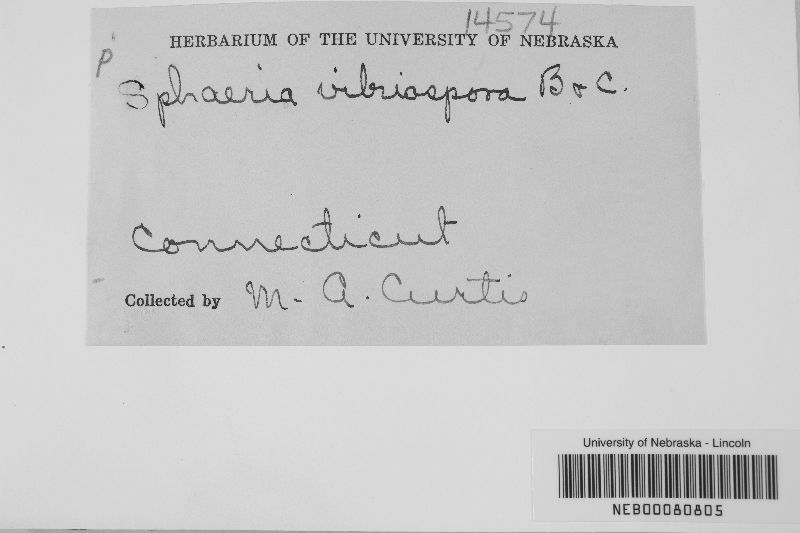 14574
HERBARIUM OF THE UNIVERSITY OF NEBRASKA
p
Sphaeria vibriospora B & C.
Connecticut
Collected by M. A. Curtis
University of Nebraska - Lincoln
NEB00080805